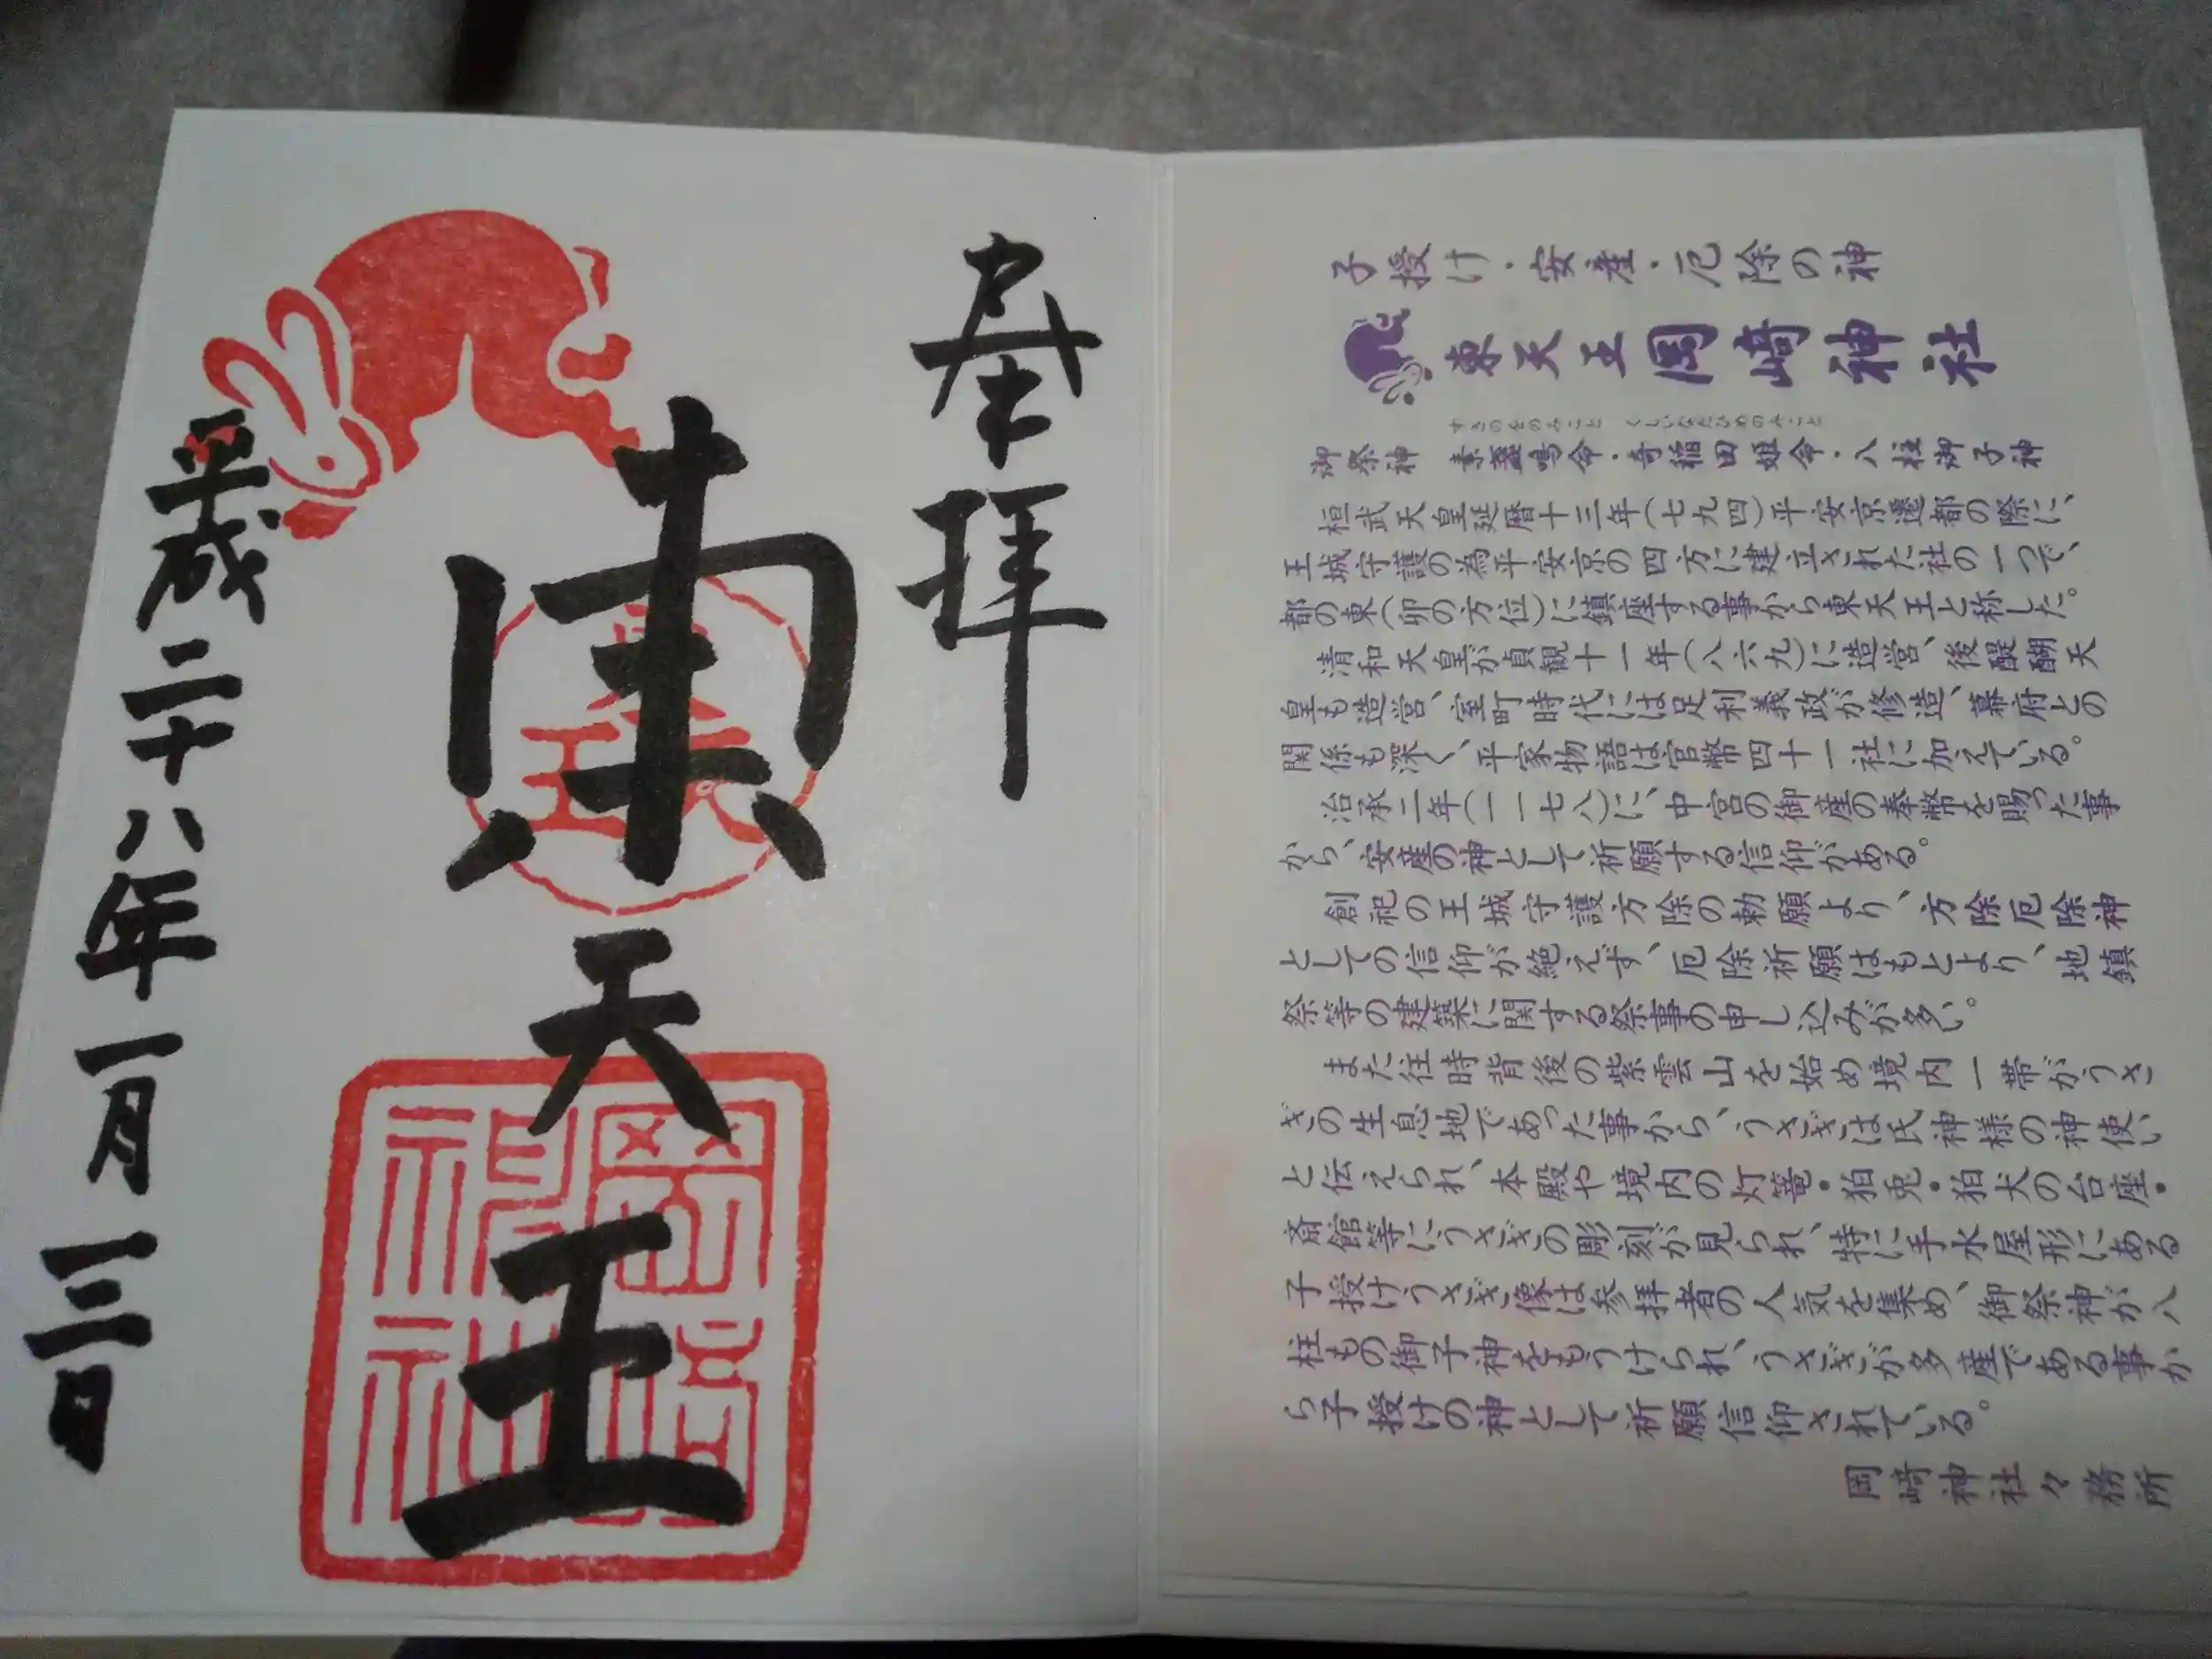 奉拝
東天王
平成二十八年一月三日
東天王
岡崎神社
子授け・安産・厄除の神
東天王岡崎神社
すさのをのみこと くしいなだひめのみこと
御祭神 素盞嗚命・奇稲田姫命・八柱御子神
桓武天皇延暦十三年(七九四)平安京遷都の際に、
王城守護の為平安京の四方に建立された社の一つで、
都の東(卯の方位)に鎮座する事から東天王と称した。
清和天皇が貞観十一年(八六九)に造営、後醍醐天
皇も造営、室町時代には足利義政が修造、幕府との
関係も深く、平家物語は官幣四十一社に加えている。
治承二年(一一七八)に、中宮の御産の奉幣を賜った事
から、安産の神として祈願する信仰がある。
創祀の王城守護方除の勅願より、方除厄除神
としての信仰が絶えず、厄除祈願はもとより、地鎮
祭等の建築に関する祭事の申し込みが多い。
また往時背後の紫雲山を始め境内一帯がうさ
ぎの生息地であった事から、うさぎは氏神様の神使い
と伝えられ、本殿や境内の灯篭・狛兎・狛犬の台座・
斎館等にうさぎの彫刻が見られ、特に手水屋形にある
子授けうさぎ像は参拝者の人気を集め、御祭神が八
柱もの御子神をもうけられ、うさぎが多産である事か
ら子授けの神として祈願信仰されている。
岡崎神社々務所